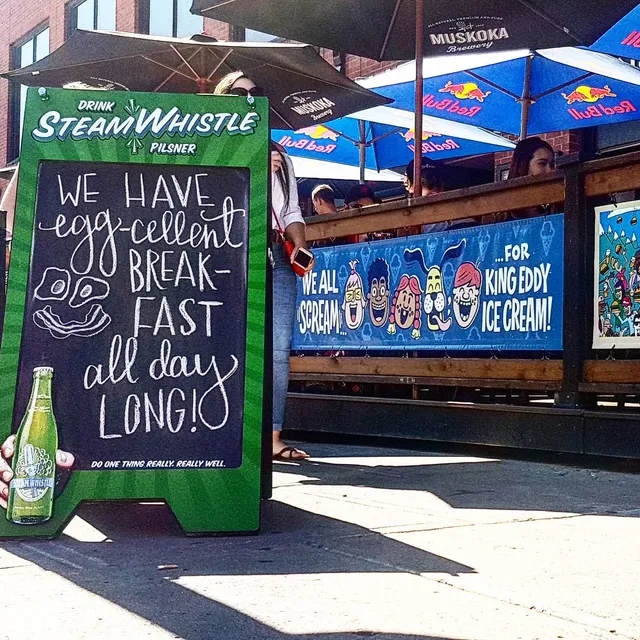 DRINK
STEAMWHISTLE
PILSNER
WE HAVE
egg-cellent
BREAK-
FAST
all day
LONG!
DO ONE THING REALLY, REALLY WELL.
STEAMWHISTLE
MUSKOKA
Brewery
MUSKOKA
Red Bull
Red Bull
Red Bull
Red Bull
WE ALL
SCREAM...
...FOR
KING EDDY
ICE CREAM!